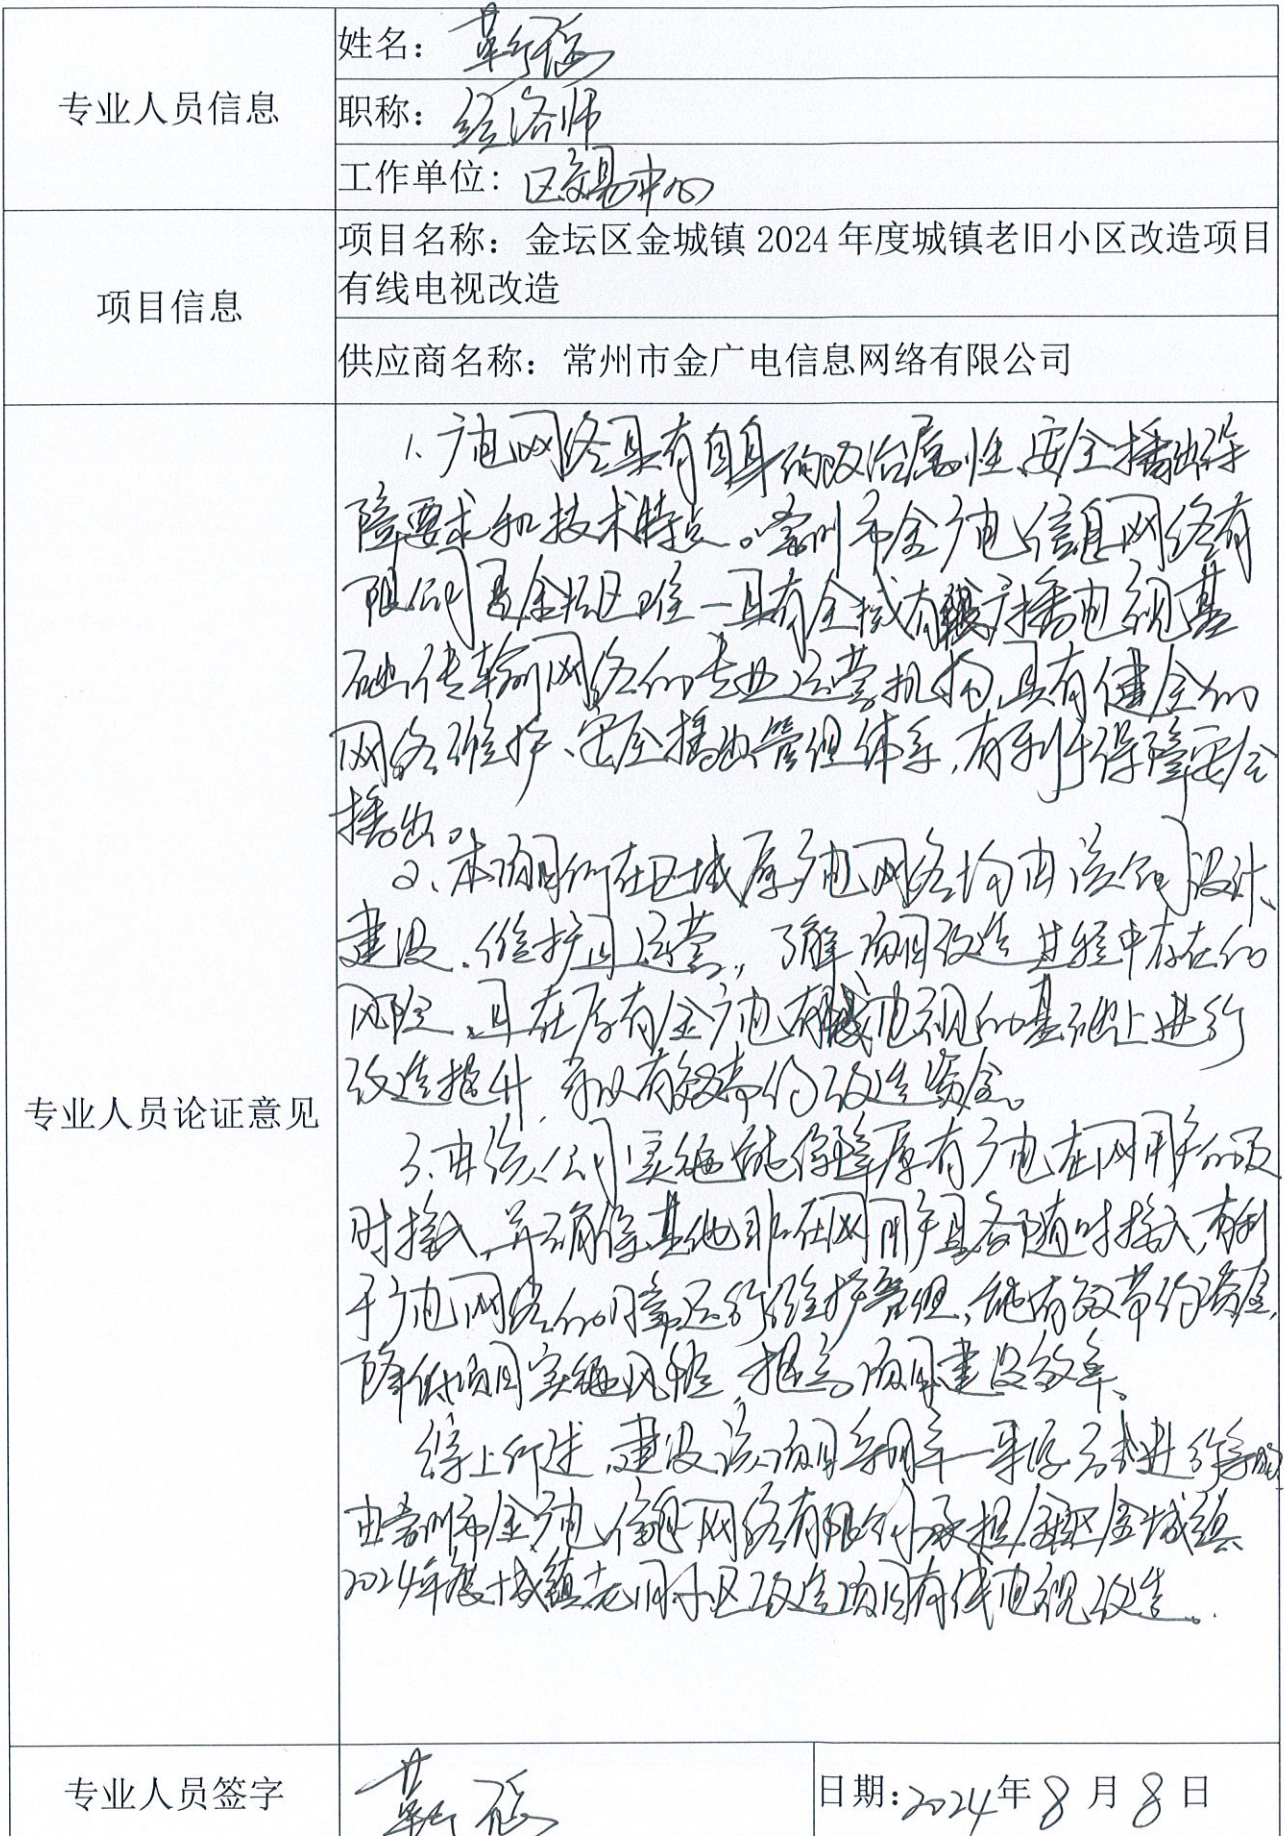 姓名：
专业人员信息
职称：经济师
工作单位：区交易中心
项目名称：金坛区金城镇2024年度城镇老旧小区改造项目
有线电视改造
项目信息
供应商名称：常州市金广电信息网络有限公司
1、广电网络具有自身的政治属性、安全播出保
障要求和技术特点。常州市金广电信息网络有
限公司是金坛区唯一具有全域有线广播电视基
础传输网络的专业运营机构，具有健全的
网络维护、安全播出管理体系，有利于保障安全
播出。
2、本项目所在区域原广电网络均由该公司设计、
建设、维护及运营，了解项目改造过程中存在的
风险，且在原有金广电有线电视的基础上进行
改造提升，可以有效节约改造资金。
专业人员论证意见
3、由该公司实施能保障原有广电在网用户的及
时接入，并确保其他非在网用户具备随时接入，有利
于广电网络的日常运行维护管理，能有效节约资金，
降低项目实施风险，提高项目建设效率。
综上所述，建议该项目采用单一来源方式进行采购，
由常州市金广电信息网络有限公司承担金坛区金城镇
2024年度城镇老旧小区改造项目有线电视改造。
专业人员签字
日期：2024年8月8日